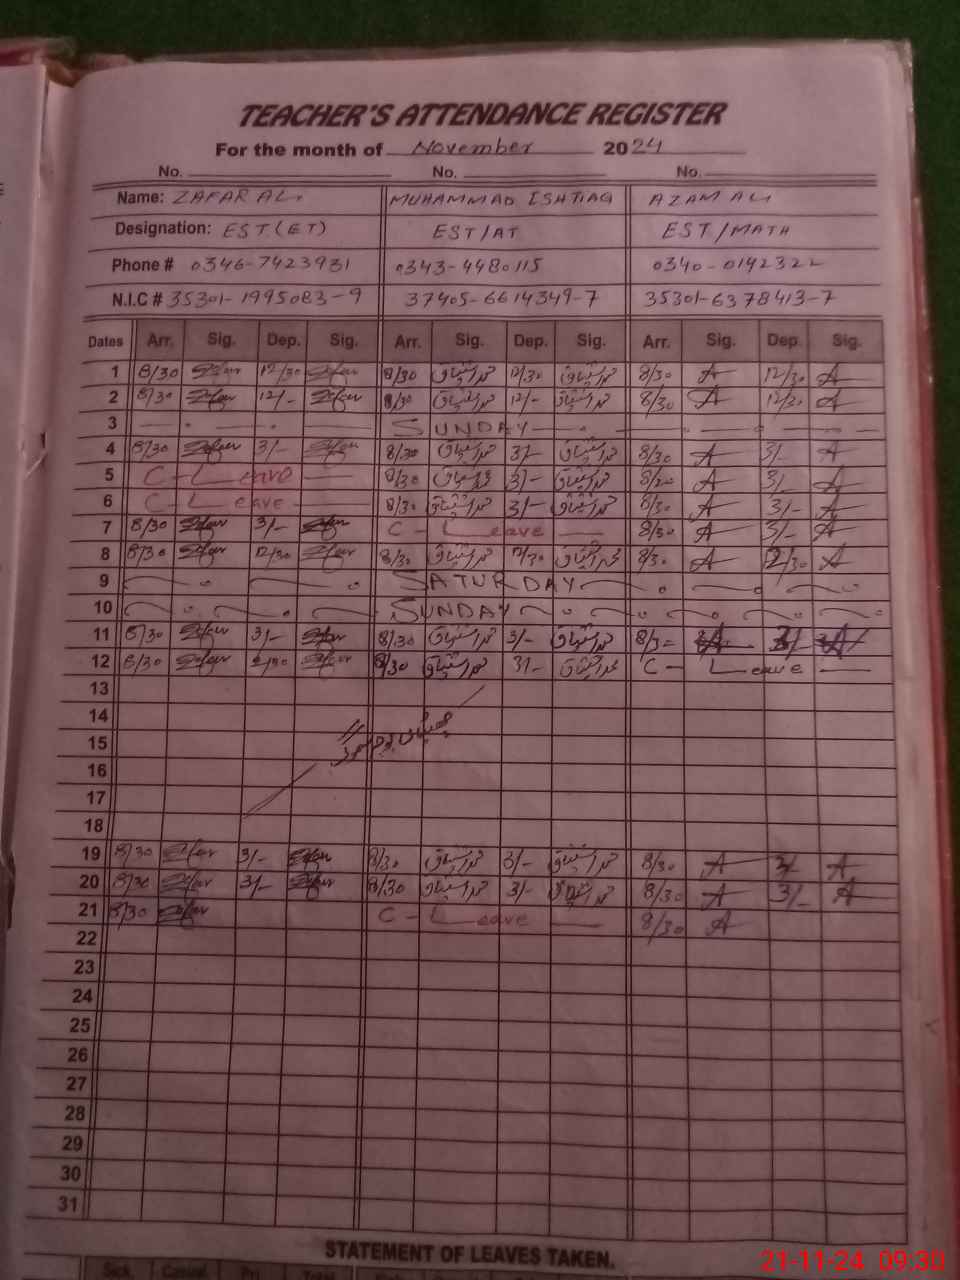 TEACHER'S ATTENDANCE REGISTER
For the month of November 2024
No. No. No.
Name: ZAFAR ALI MUHAMMAD ISHTIAQ AZAM ALI
Designation: EST.(ET) EST/AT EST/MATH
Phone # 0346-7423931 0343-4480115 0340-0142322
N.I.C # 35301-1995083-9 37405-6614349-7 35301-6378413-7
Dates Arr. Sig. Dep. Sig. Arr. Sig. Dep. Sig. Arr. Sig. Dep. Sig.
1 8/30 Zafar 12/30 Zafar 8/30 محمد اشتیاق 12/30 محمد اشتیاق 8/30 A 12/30 A
2 8/30 Zafar 12/- Zafar 8/30 محمد اشتیاق 12/- محمد اشتیاق 8/30 A 12/30 A
3 SUNDAY
4 8/30 Zafar 3/- Zafar 8/30 محمد اشتیاق 3/- محمد اشتیاق 8/30 A 3/- A
5 C - Leave 8/30 محمد اشتیاق 3/- محمد اشتیاق 8/30 A 3/- A
6 C - Leave 8/30 محمد اشتیاق 3/- محمد اشتیاق 8/30 A 3/- A
7 8/30 Zafar 3/- Zafar C - Leave 8/30 A 3/- A
8 8/30 Zafar 12/30 Zafar 8/30 محمد اشتیاق 12/30 محمد اشتیاق 8/30 A 12/30 A
9 SATURDAY
10 SUNDAY
11 8/30 Zafar 3/- Zafar 8/30 محمد اشتیاق 3/- محمد اشتیاق 8/30 A 3/- A
12 8/30 Zafar Zafar 8/30 محمد اشتیاق 3/- محمد اشتیاق C - Leave
13
14
15
16
17
18
19 8/30 Zafar 3/- Zafar 8/30 محمد اشتیاق 3/- محمد اشتیاق 8/30 A 3/- A
20 8/30 Zafar 3/- Zafar 8/30 محمد اشتیاق 3/- محمد اشتیاق 8/30 A 3/- A
21 8/30 Zafar C - Leave 8/30 A
22
23
24
25
26
27
28
29
30
31
STATEMENT OF LEAVES TAKEN.
21-11-24 09:30